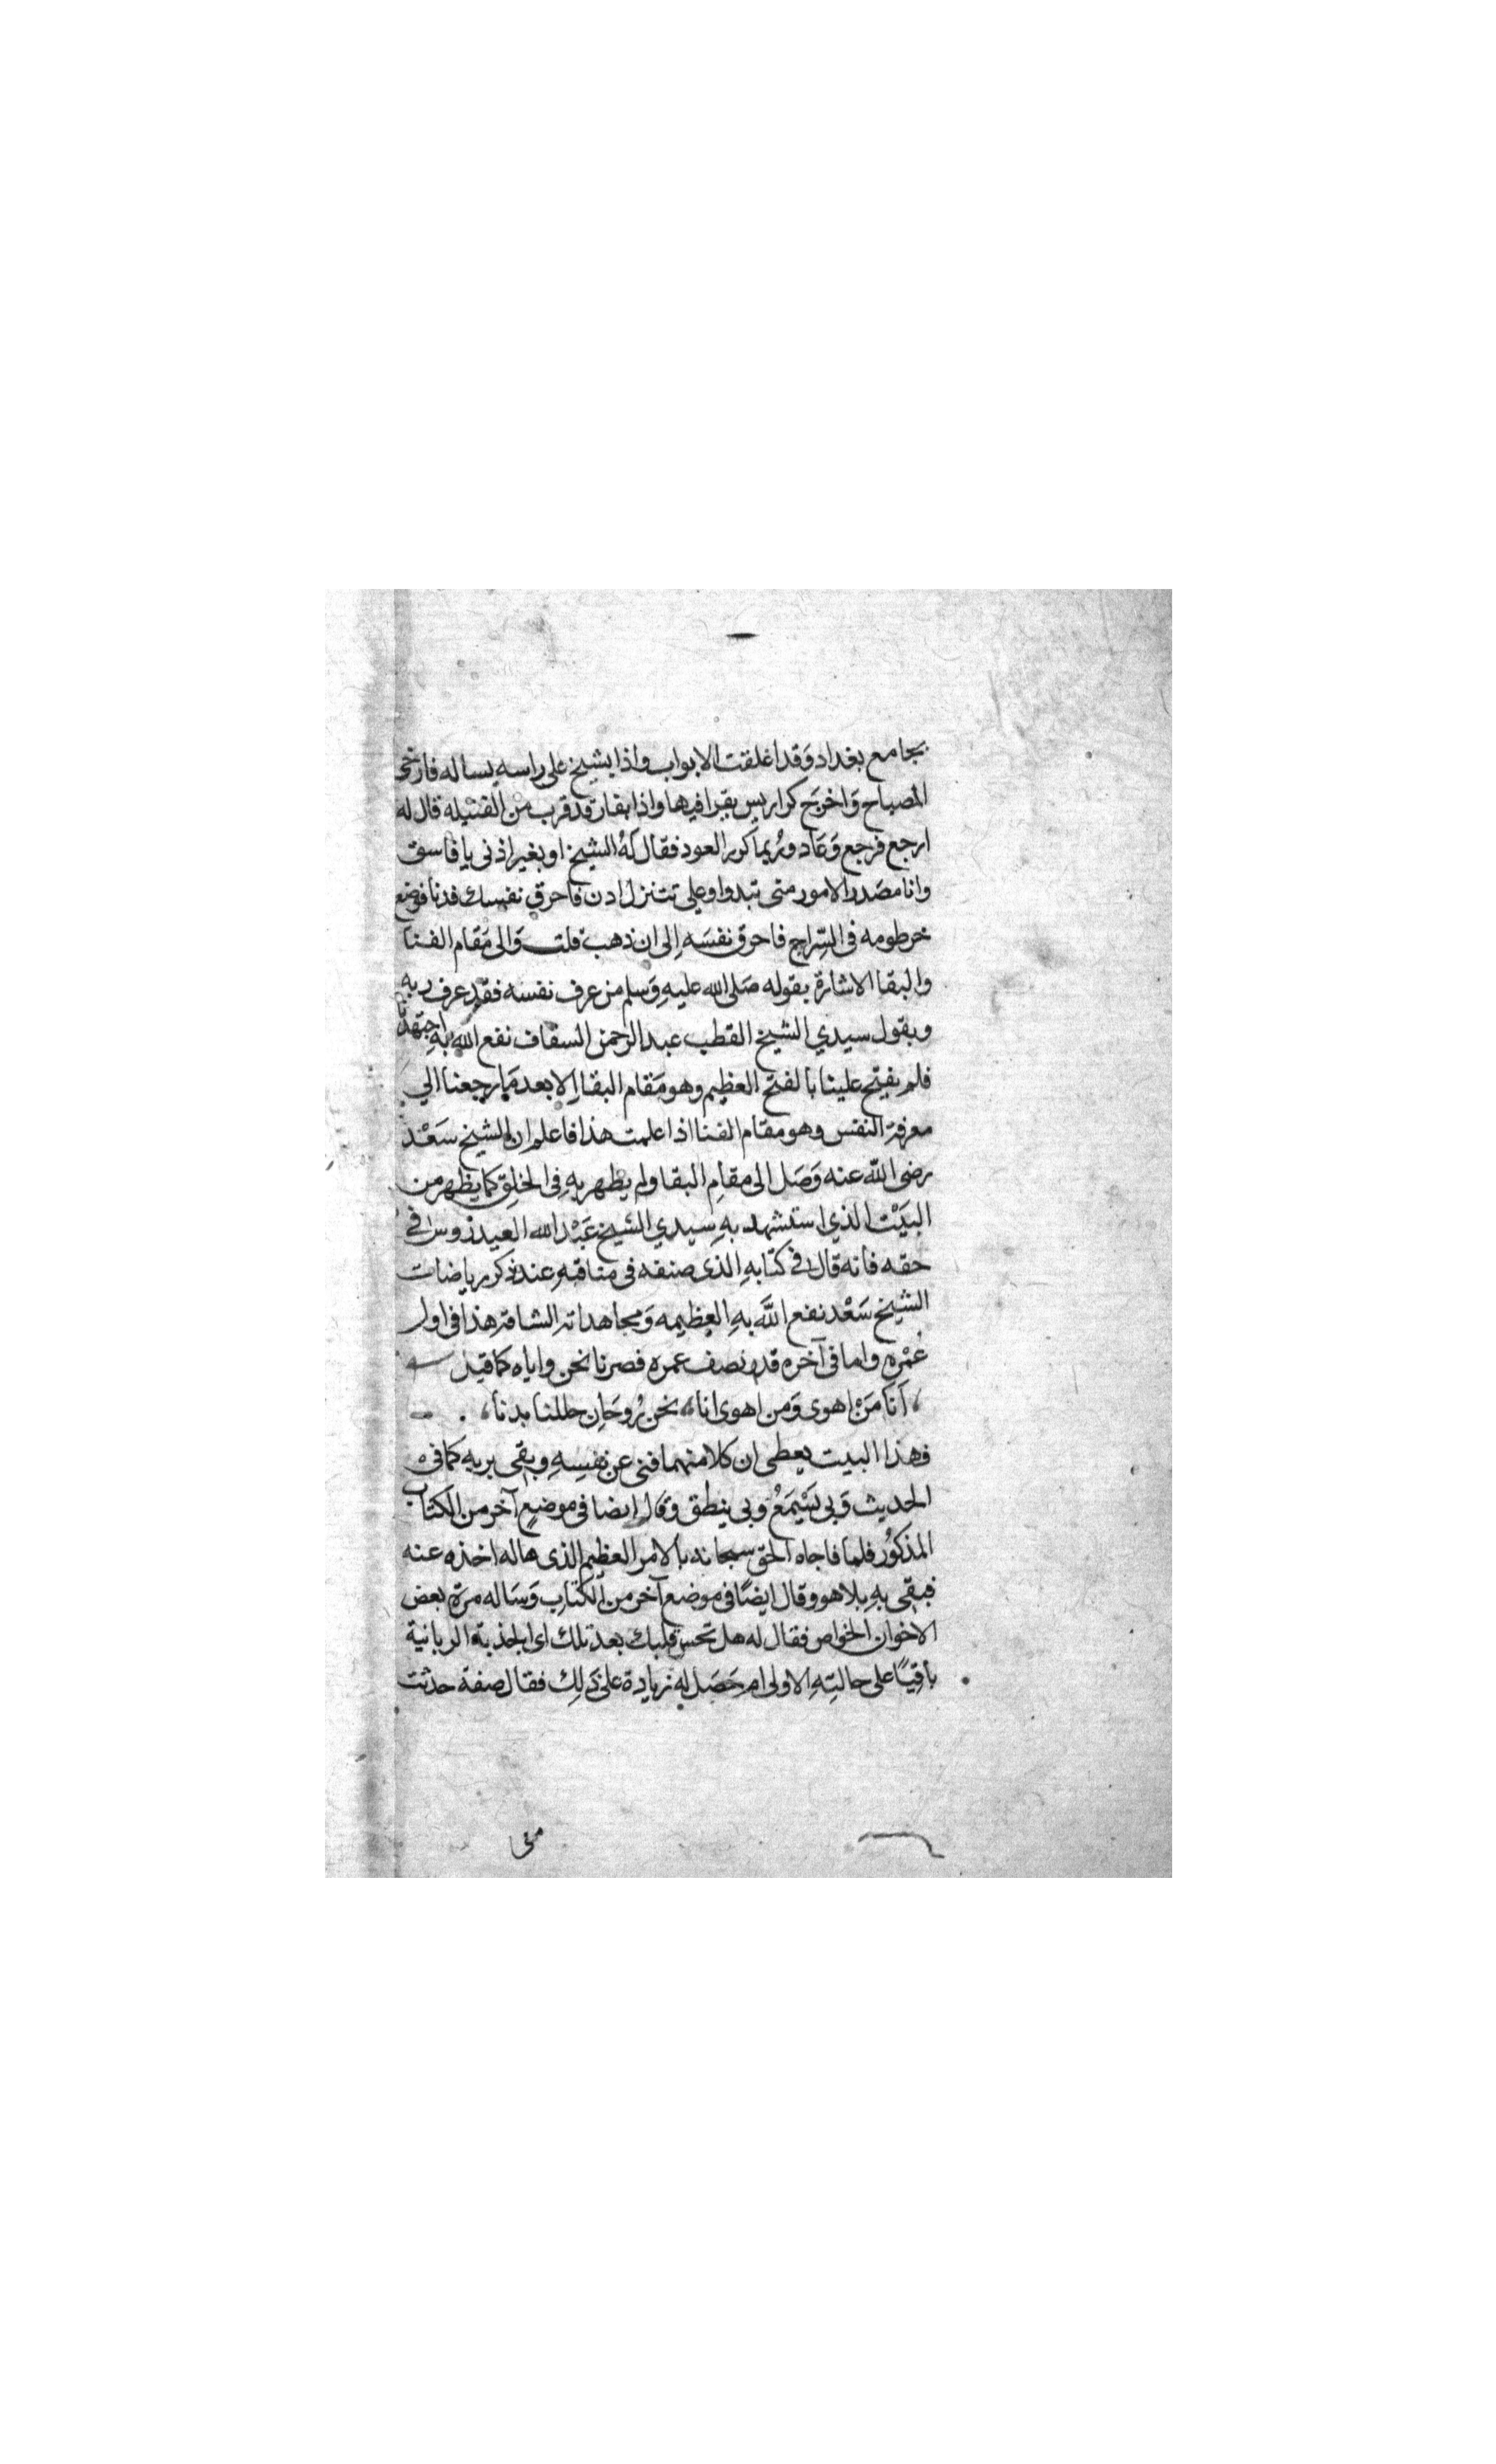 بجامع بغداد وَقد اغلقت الابواب واذا بشيخ على راسه يساله فارخى
المصباح وَاخرجَ كراريس يقرا فيها واذا بفار قد قرب من الفتيله قال له
ارجع فرجع وَعَاد وربما كرر العود فقال لَهُ الشيخ او بغير اذنى يا فاسق
وانا مصَدر الامور منى تبدوا وعلى تتنزل ادن فاحرق نفسك فدنا فوضع
خرطومه فى السِّراج فاحرق نفسَه اِلى ان ذهب قلت وَالى مَقام الفنا
والبقا الاشارة بقوله صَلى الله عليهِ وَسلم من عرف نفسَه فقد عرف ربه
وبقول سيدي الشيخ القطب عبد الرحمن السقاف نفع الله بهِ اجتهدنا
فلم يفتح علينا بالفتح العظيم وهو مَقام البقا اِلا بعد مَا رجعنا الي
معرفة النفس وهو مقام الفنا اذا علمت هذا فاعلم ان الشيخ سَعْد
رضى الله عنه وَصَل الى مقامِ البقا ولم يظهر بهِ فى الخلق كما يظهر من
البيَت الذي استشهد بهِ سيدي الشيخ عَبْد الله العيدروس فى
حقه فانه قال فى كتابهِ الذى صنفه فى مناقبهِ عند ذكر رياضات
الشيخ سَعْد نفع اللَّه بهِ العظيمه وَمجاهداته الشاقة هذا فى اول
عُمْره واما فى آخره قدر نصف عمره فصرنا نحن واياه كما قيل
، اَنَا مَنْ اهوى وَمن اهوى انا، نحن رُوحَانِ حللنا بدنا،
فهذا البيت يعطى ان كلا منهما فنى عن نفسِهِ وبقى بربه كما فى
الحديث وَبى يَسْمَعُ وبى ينطق وقال ايضا فى موضعٍ آخر من الكتاب
المذكوُر فلما فاجاه الحق سبحانه بالامر العظيم الذى هاله اخذه عنه
فبقى بهِ بلا هو وقال ايضًا فى موضع آخر من الكتاب وَسَاله مرّة بعض
الاخوان الخواص فقال له هل تحس قلبك بعد تلك اى الجذبة الربانية
باقِيًا على حالتِهِ الاولى ام حَصَل له زيادة على ذَلِك فقال صفة حدثت